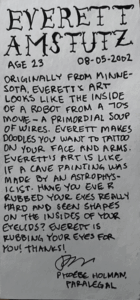 EVERETT
AMSTUTZ
AGE 23 08-05-2002
ORIGINALLY FROM MINNE-
SOTA, EVERETT'S ART
LOOKS LIKE THE INSIDE
OF A ROBOT FROM A 70S
MOVIE - A PRIMORDIAL SOUP
OF WIRES. EVERETT MAKES
DOODLES YOU WANT TO TATTOO
ON YOUR FACE AND ARMS.
EVERETT'S ART IS LIKE
IF A CAVE PAINTING WAS
MADE BY AN ASTROPHYS-
ICIST. HAVE YOU EVER
RUBBED YOUR EYES REALLY
HARD AND SEEN SHAPES
ON THE INSIDES OF YOUR
EYELIDS? EVERETT IS
RUBBING YOUR EYES FOR
YOU! THANKS!
PHOEBE HOLMAN,
PARALEGAL